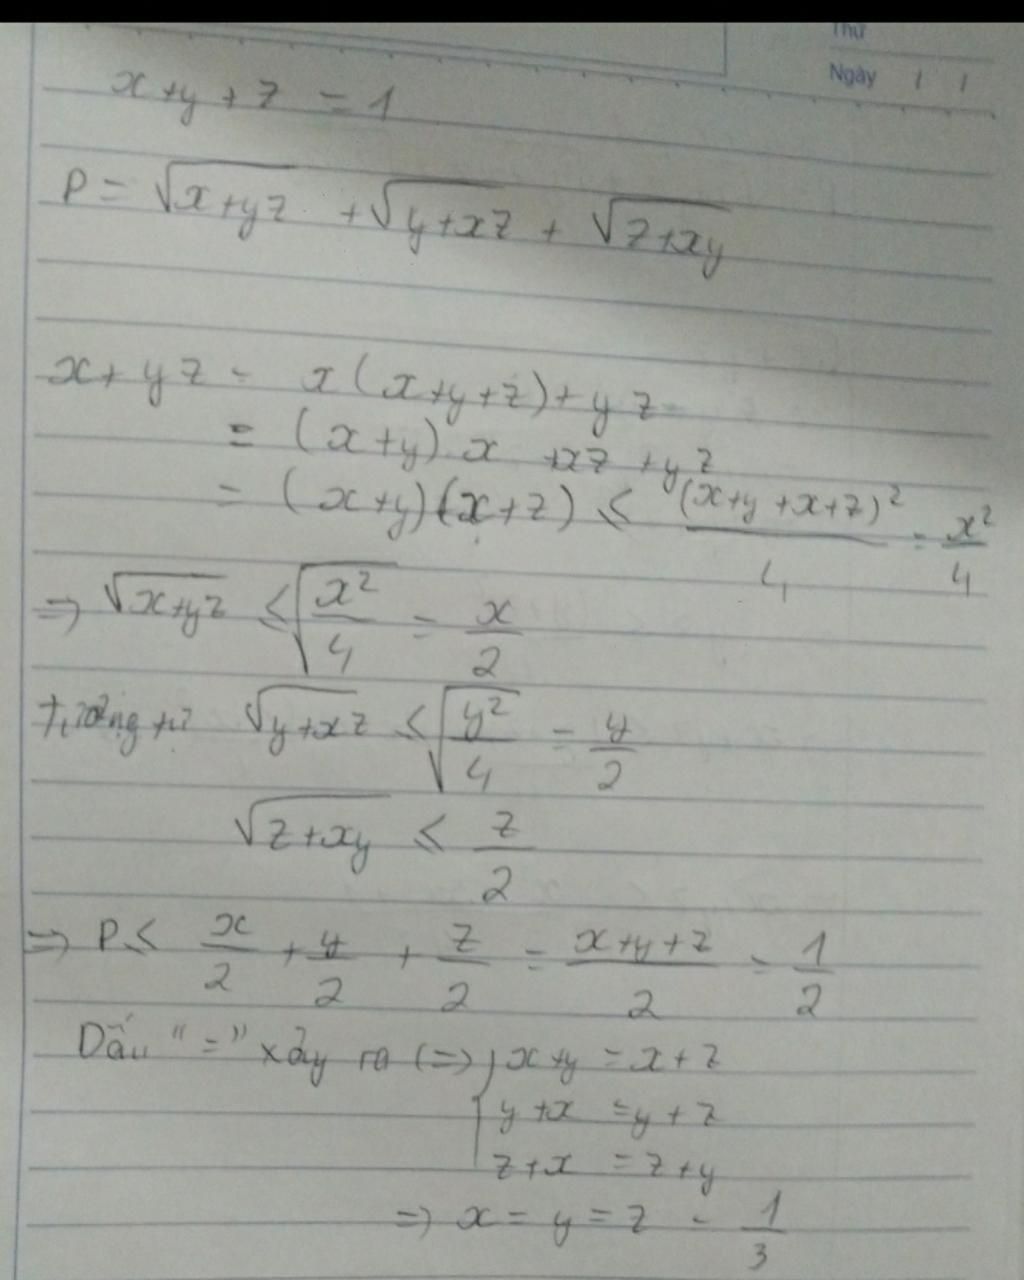 Thứ
Ngày / /
x+y+z = 1
P = √(x+yz) + √(y+xz) + √(z+xy)
x+yz = x(x+y+z)+yz
= (x+y)x +xz+yz
= (x+y)(x+z) ≤ (x+y+x+z)²/4 = x²/4
=> √(x+yz) ≤ √(x²/4) = x/2
tương tự √(y+xz) ≤ √(y²/4) = y/2
√(z+xy) ≤ z/2
=> P ≤ x/2 + y/2 + z/2 = (x+y+z)/2 = 1/2
Dấu "=" xảy ra (=> { x+y = x+z
y+x = y+z
z+x = z+y
=> x = y = z = 1/3